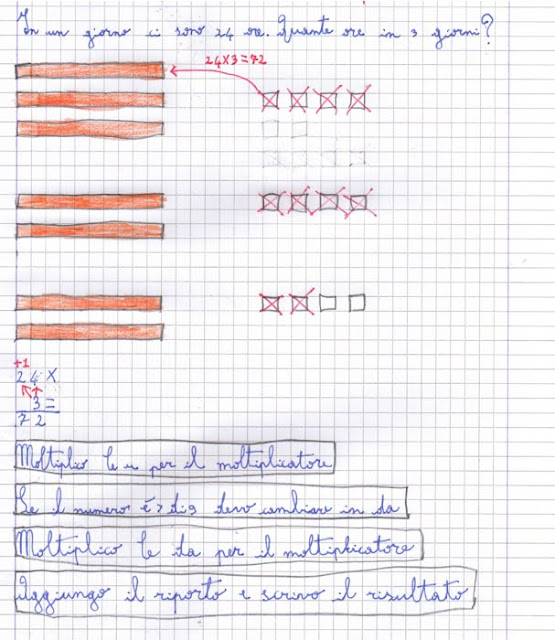 In un giorno ci sono 24 ore. Quante ore in 3 giorni?
24X3=72
+1
24X
3=
72
Moltiplico le u per il moltiplicatore
Se il numero é > di 9 devo cambiare in da
Moltiplico le da per il moltiplicatore
Aggiungo il riporto e scrivo il risultato